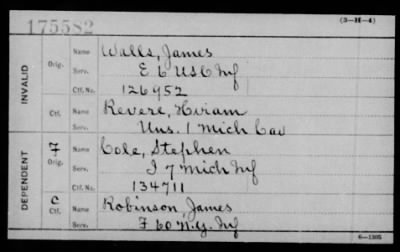 175582 (3-H-4)
INVALID
Orig. Name Walls, James
Serv. E 6 USC Inf
Ctf. No. 126952
Ctf. Name Revere, Hiram
Serv. Uns. 1 Mich Cav
DEPENDENT
F Orig. Name Cole, Stephen
Serv. I 7 Mich Inf
Ctf. No. 134711
C Ctf. Name Robinson, James
Serv. F 60 N.Y. Inf
6-1305